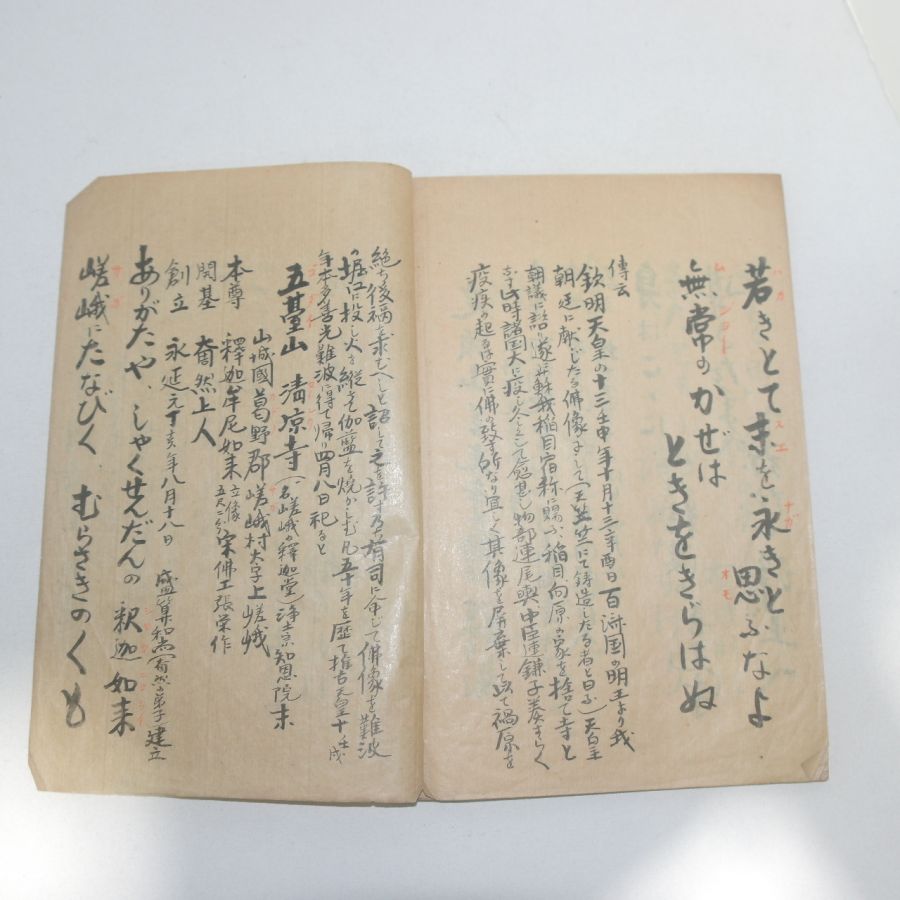 若きとて末を永きと思ふなよ
無常のかぜは
ときをきらはぬ
傳云
欽明天皇の十三壬申年十月十三辛酉日百済国の明王より我
朝廷に献じたる佛像にして(天竺にて鋳造したる者と曰ふ)天皇
朝議に詔り遂に蘇我稲目宿称に賜ふ、稲目向原の家を捨て寺と
なす此時諸国大に疫し久ふして愈甚し物部連尾輿中臣連鎌子奏すらく
疫疾の起るは實に佛の致す所なり宜しく其像を屏棄して以て禍原を
絶ち後福を求むへしと詔して之を許す乃有司に命じて佛像を難波
の堀江に投し火を縦て伽藍を焼かしむ凡五十年を歴て推古天皇十壬戌
年本多善光難波に得て帰り四月八日祀ると
五䑓山 清凉寺(一名嵯峨の釋迦堂)浄土宗知恩院末
山城國葛野郡嵯峨村大字上嵯峨
本尊 釋迦牟尼如来 立像五尺二寸 宋佛工張栄作
開基 奝然上人
創立 永延元丁亥年八月十八日 盛算和尚(奝然の弟子)建立
ありがたや、しゃくせんだんの釈迦如来
嵯峨にたなびく むらさきのくも